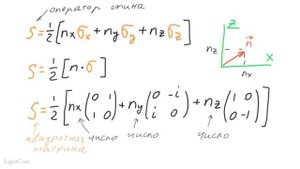 оператор спина
S=½[nₓσₓ+nᵧσᵧ+n_zσ_z]
S=½[n·σ]
S=½[nₓ(0 1
1 0)+nᵧ(0 -i
i 0)+n_z(1 0
0 -1)]
квадратная матрица
число
число
число
z
n_z
n
x
nₓ
LightCone